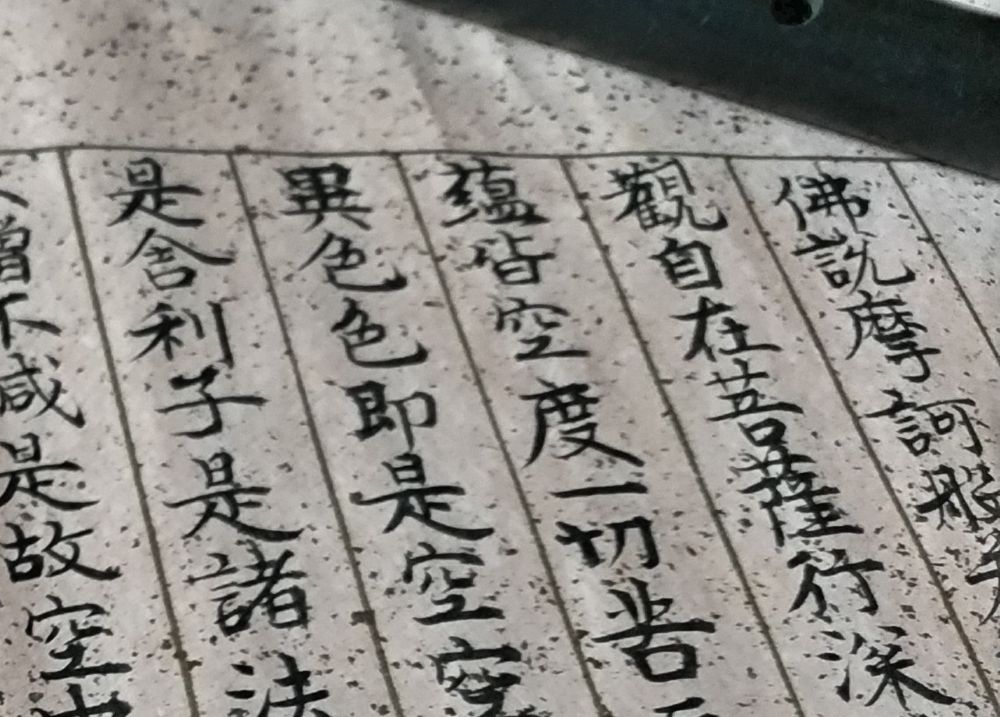 佛說摩訶般
觀自在菩薩行深
蘊皆空度一切苦
異色色即是空空
是舍利子是諸法
增不減是故空中